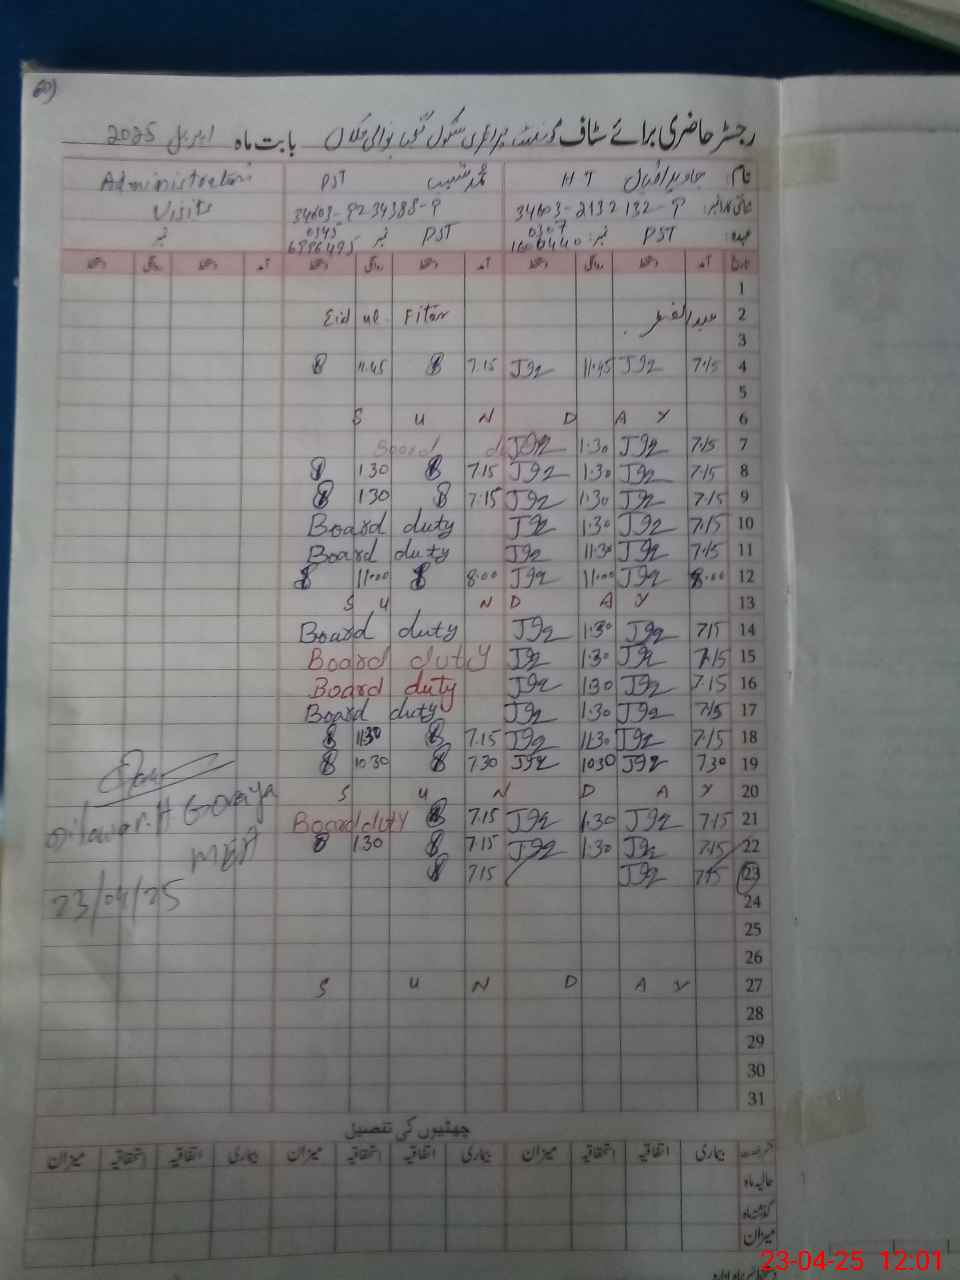 رجسٹر حاضری برائے سٹاف گورنمنٹ پرائمری سکول بابت ماہ اپریل 2025
نام: جاوید اقبال H T PST Administration
34603-2132132-9 34603-9234388-9 Visits
عہدہ: PST نمبر: 0307 PST نمبر 0345 نمبر
تاریخ آمد دستخط روانگی دستخط آمد دستخط روانگی دستخط آمد دستخط روانگی دستخط
1
2 عید الفطر Eid ul Fitar
3
4 7.15 J92 11.45 J92 7.15 11.45
5
6 S U N D A Y
7 7.15 J92 1.30 J92 Board
8 7.15 J92 1.30 J92 7.15 1.30
9 7.15 J92 1.30 J92 7.15 1.30
10 7.15 J92 1.30 J92 Board duty
11 7.15 J92 11.30 J92 Board duty
12 8.00 J92 11.00 J92 8.00 11.00
13 S U N D A Y
14 7.15 J92 1.30 J92 Board duty
15 7.15 J92 1.30 J92 Board duty
16 7.15 J92 1.30 J92 Board duty
17 7.15 J92 1.30 J92 Board duty
18 7.15 J92 11.30 J92 7.15 11.30
19 7.30 J92 10.30 J92 7.30 10.30
20 S U N D A Y
21 7.15 J92 1.30 J92 7.15 Board duty
22 7.15 J92 1.30 J92 7.15 1.30
23 7.15 J92 7.15
24
25
26
27 S U N D A Y
28
29
30
31
MEA
23/04/25
چھٹیوں کی تفصیل
رخصت بیماری اتفاقیہ استحقاقیہ میزان بیماری اتفاقیہ استحقاقیہ میزان بیماری اتفاقیہ استحقاقیہ میزان
حالیہ ماہ
گذشتہ ماہ
میزان
23-04-25 12:01